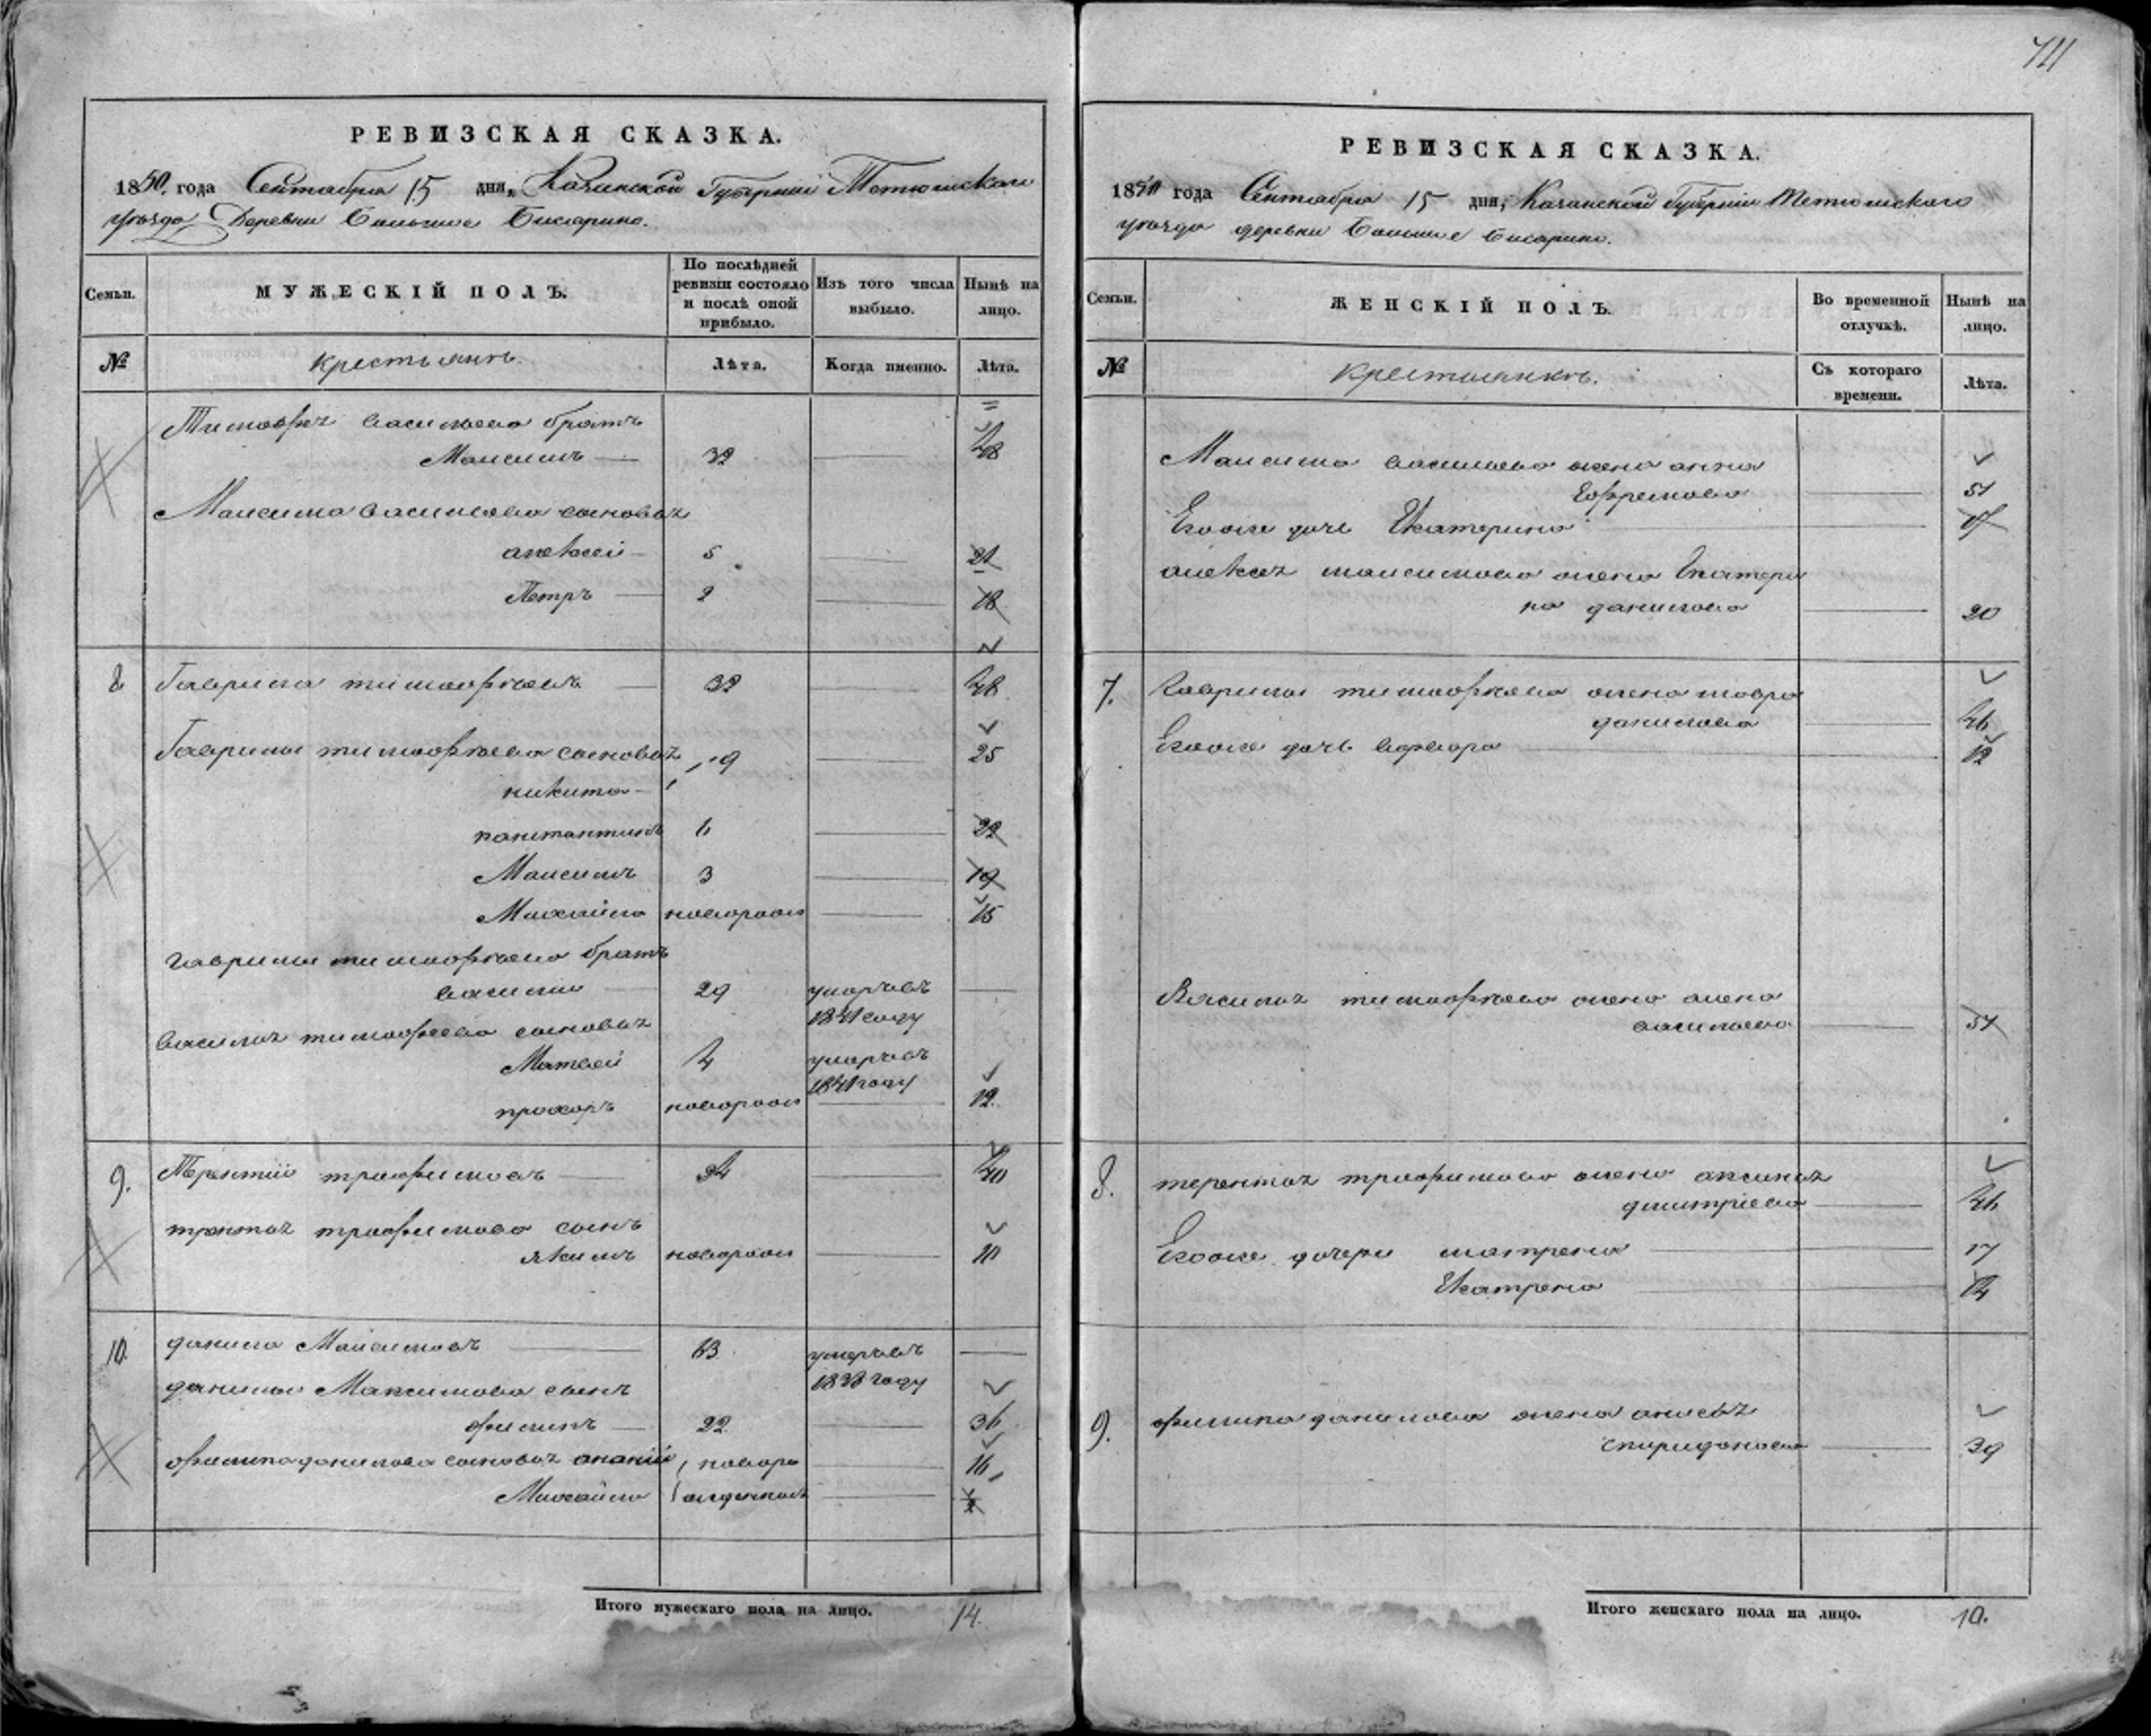 711
РЕВИЗСКАЯ СКАЗКА.
1850 года Сентября 15 дня, Казанской Губерніи Тетюшскаго
уѣзда Деревни Большое Бисарино.
Семьи.
МУЖЕСКІЙ ПОЛЪ.
По послѣдней ревизіи состояло и послѣ оной прибыло.
Изъ того числа выбыло.
Нынѣ на лицо.
№
крестьянъ.
Лѣта.
Когда именно.
Лѣта.
Тимофея Васильева братъ
Максимъ 32 48
Максима Васильева сыновья
алексей 5 21
Петръ 2 18
8 Гаврила тимофѣевъ 32 48
Гаврилы тимофѣева сыновья 9 25
никита
констонтинъ 6 22
Максимъ 3 19
Михайло новорож 15
гаврилы тимофѣева братъ
василий 29 умерѣвъ
1841 году
василья тимофеева сыновья
Матвей 4 умерѣвъ
1841 году
прохоръ новорож 12
9. Терентий трофимовъ 24 40
терентья трофимова сынъ
якимъ новорож 10
10. данила Максимовъ 63 умерѣвъ
1838 году
данилы Максимова сынъ
филипъ 22 36
филипа данилова сыновья ананий новоро 16
Михайло жденные 2
Итого мужескаго пола на лицо. 14.
РЕВИЗСКАЯ СКАЗКА.
1850 года Сентября 15 дня, Казанской Губерніи Тетюшскаго
уѣзда деревни Большое Бисарино.
Семьи.
ЖЕНСКІЙ ПОЛЪ.
Во временной отлучкѣ.
Нынѣ на лицо.
№
крестьянкъ.
Съ котораго времени.
Лѣта.
Максима васильева жена анна
Ефремова 51
Егоже дочь Екатерина 17
алексея максимова жена Екатери
на данилова 20
7. Гаврилы тимофѣева жена мавра
данилова 46
Егоже дочь варвара 12
Василья тимофѣева жена алена
васильева 51
8. терентья трофимова жена аксинья
дмитриева 46
Егоже дочери матрена 17
Екатрена 14
9. филипа данилова жена анисья
спиридонова 39
Итого женскаго пола на лицо. 10.